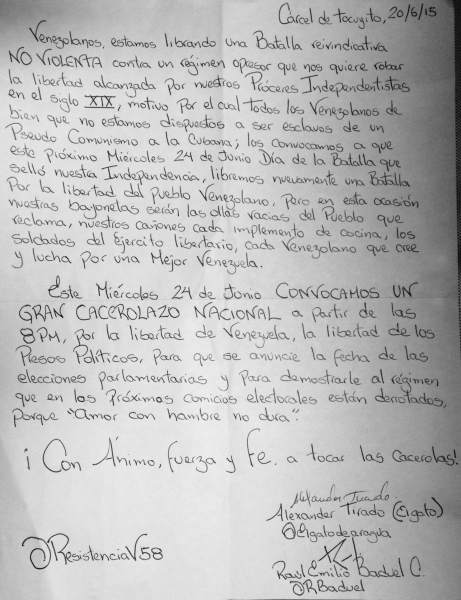 Cárcel de tocuyito, 20/6/15
Venezolanos, estamos librando una Batalla reivindicativa
NO VIOLENTA contra un régimen opresor que nos quiere robar
la libertad alcanzada por nuestros Próceres Independentistas
en el siglo XIX, motivo Por el cual todos los Venezolanos de
bien que no estamos dispuestos a ser esclavos de un
Pseudo Comunismo a la Cubana; los convocamos a que
este Próximo Miércoles 24 de Junio Día de la Batalla que
selló nuestra Independencia, libremos nuevamente una Batalla
Por la libertad del Pueblo Venezolano, Pero en esta ocasión
nuestras bayonetas serán las ollas vacias del Pueblo que
reclama, nuestros cañones cada implemento de cocina, los
soldados del Ejercito libertario, cada Venezolano que cree
y lucha Por una Mejor Venezuela.
Este Miércoles 24 de Junio CONVOCAMOS UN
GRAN CACEROLAZO NACIONAL a partir de las
8PM, Por la libertad de Venezuela, la libertad de los
Presos Políticos, Para que se anuncie la fecha de las
elecciones parlamentarias y Para demostrarle al régimen
que en los Próximos comicios electorales están derrotados,
Porque "Amor con hambre no dura".
¡Con Ánimo, fuerza y Fe. a tocar las Cacerolas!
Alexander Tirado.
Alexander Tirado (El gato)
@Elgatodearagua
@ResistenciaV58
Raúl Emilio Baduel C.
@RBaduel